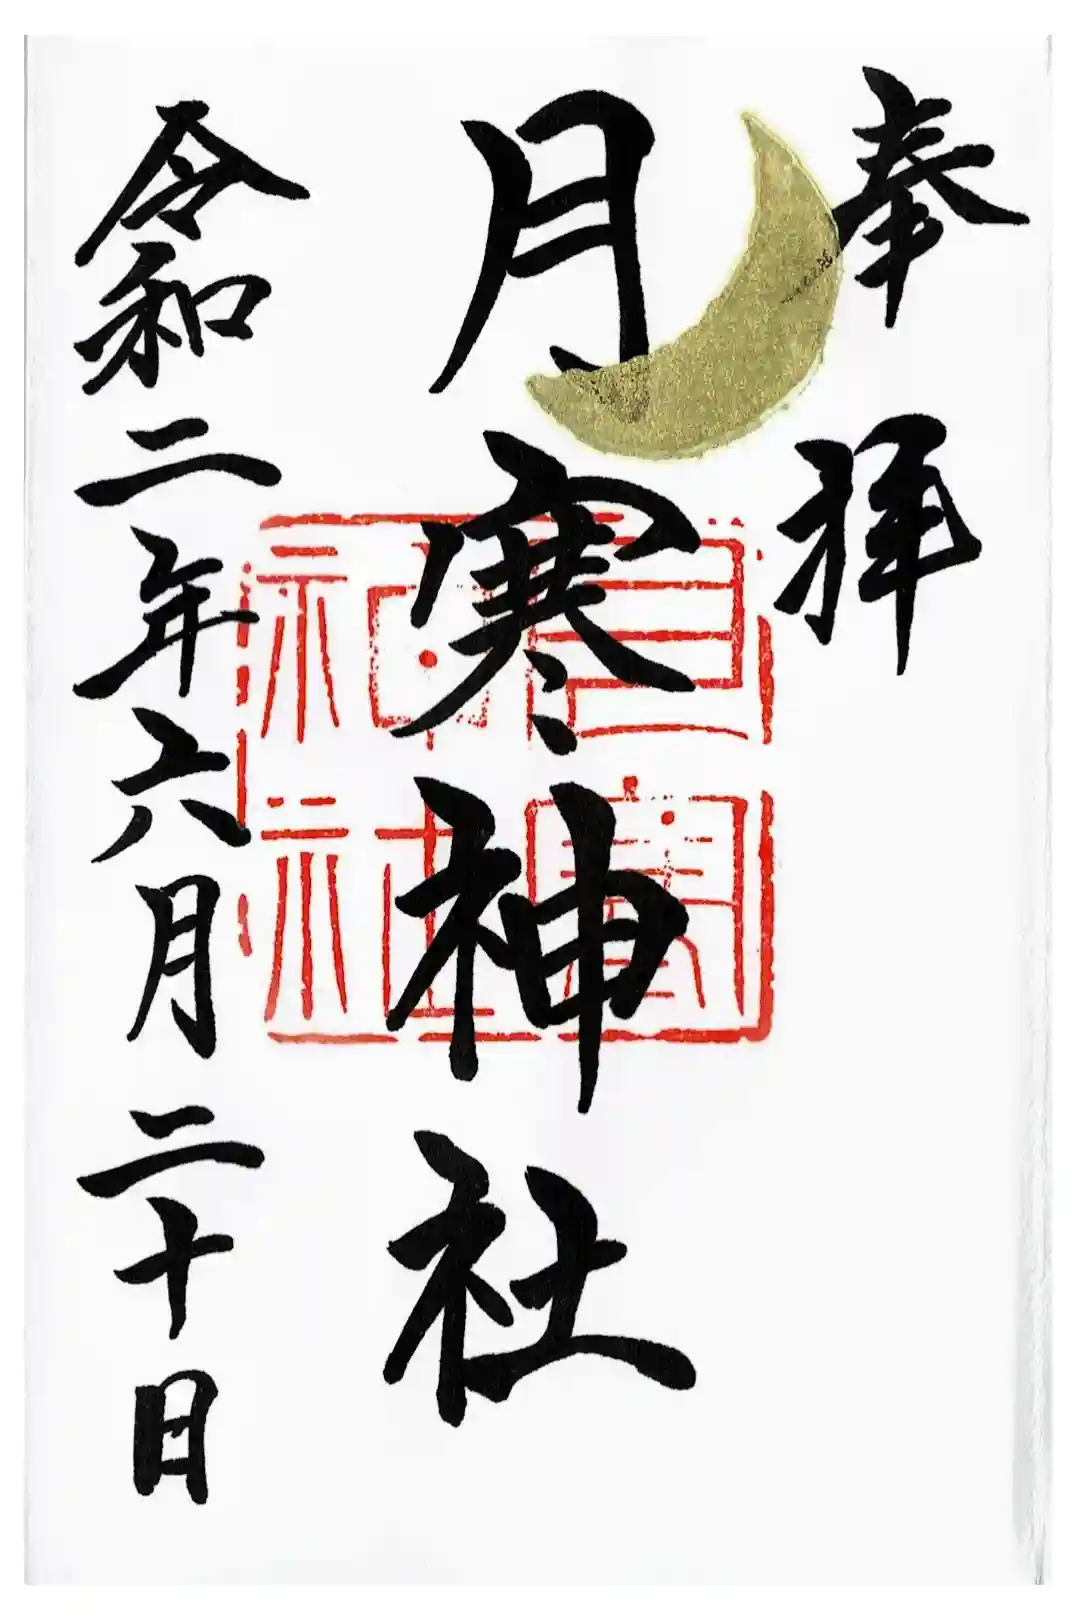 奉拝
月寒神社
月寒神社
令和二年六月二十日